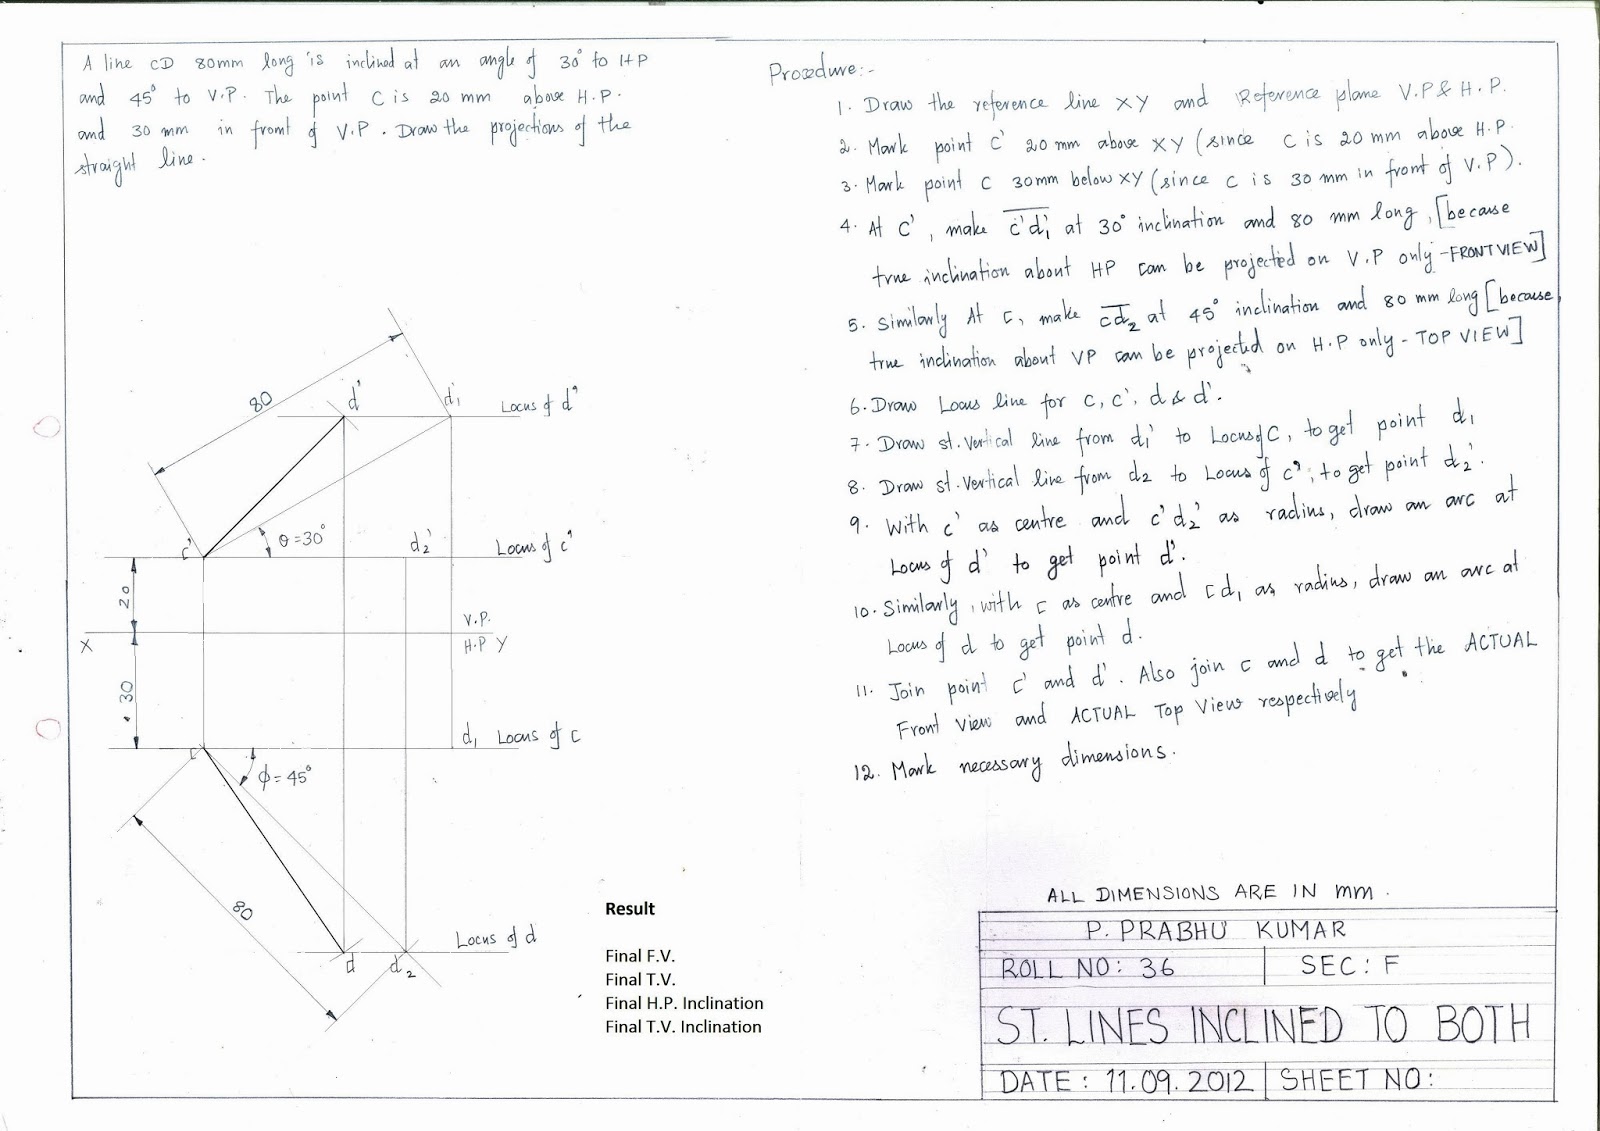 A line CD 80mm long is inclined at an angle of 30° to HP
and 45° to V.P. The point C is 20 mm above H.P.
and 30 mm in front of V.P. Draw the projections of the
straight line.
Procedure:-
1. Draw the reference line XY and Reference plane V.P & H.P.
2. Mark point c' 20 mm above XY (since C is 20 mm above H.P.
3. Mark point c 30mm below XY (since c is 30 mm in front of V.P).
4. At c', make c'd₁' at 30° inclination and 80 mm long, [because
true inclination about HP can be projected on V.P only - FRONT VIEW]
5. Similarly At c, make cd₂ at 45° inclination and 80 mm long [because,
true inclination about VP can be projected on H.P only - TOP VIEW]
6. Draw Locus line for c, c', d & d'.
7. Draw st. vertical line from d₁' to Locus of C, to get point d₁
8. Draw st. vertical line from d₂ to Locus of c', to get point d₂'.
9. With c' as centre and c'd₂' as radius, draw an arc at
Locus of d' to get point d'.
10. Similarly, with c as centre and cd₁ as radius, draw an arc at
Locus of d to get point d.
11. Join point c' and d'. Also join c and d to get the ACTUAL
Front View and ACTUAL Top View respectively
12. Mark necessary dimensions.
80
d'
d₁'
Locus of d'
c'
θ=30°
d₂'
Locus of c'
20
V.P.
X
H.P Y
30
c
d₁ Locus of c
φ=45°
80
d
d₂
Locus of d
Result
Final F.V.
Final T.V.
Final H.P. Inclination
Final T.V. Inclination
ALL DIMENSIONS ARE IN mm.
P. PRABHU KUMAR
ROLL NO: 36
SEC: F
ST. LINES INCLINED TO BOTH
DATE: 11.09.2012
SHEET NO: